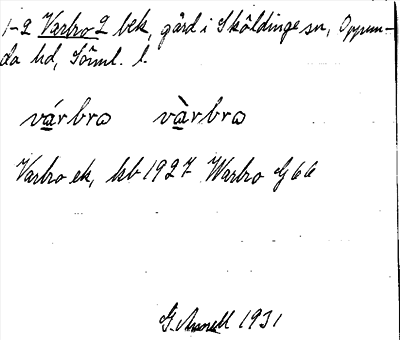 1-2 Varbro 2 bek, gård i Sköldinge sn, Oppun-
da hd, Söml. l.
várbrω vàrbrω
Varbro ek, kb 1927 Warbro G66
G. 1931